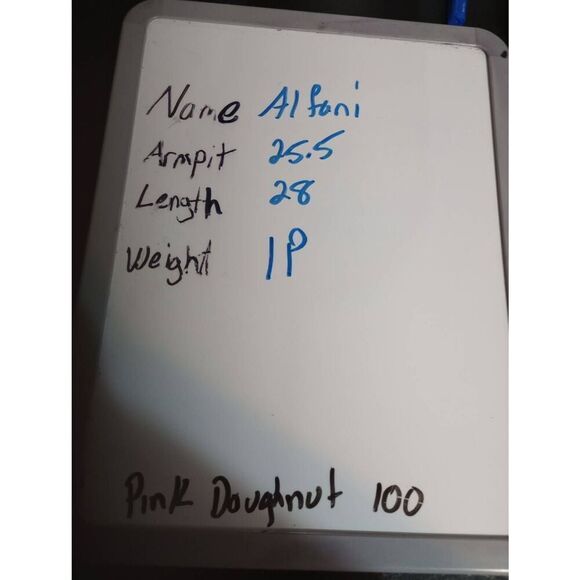 Name Alfani
Armpit 25.5
Length 28
Weight 1P
Pink Doughnut 100